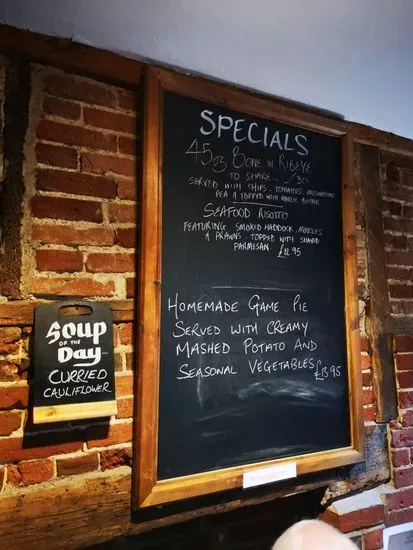 SPECIALS
45oz BONE IN RIBEYE
TO SHARE...
SERVED WITH CHIPS, TOMATOES, MUSHROOMS
PEA & TOPPED WITH GARLIC BUTTER
SEAFOOD RISOTTO
FEATURING SMOKED HADDOCK, MUSSELS
& PRAWNS TOPPED WITH SHAVED
PARMESAN £12.95
HOMEMADE GAME PIE
SERVED WITH CREAMY
MASHED POTATO AND
SEASONAL VEGETABLES £13.95
Soup
OF THE
Day...
CURRIED
CAULIFLOWER